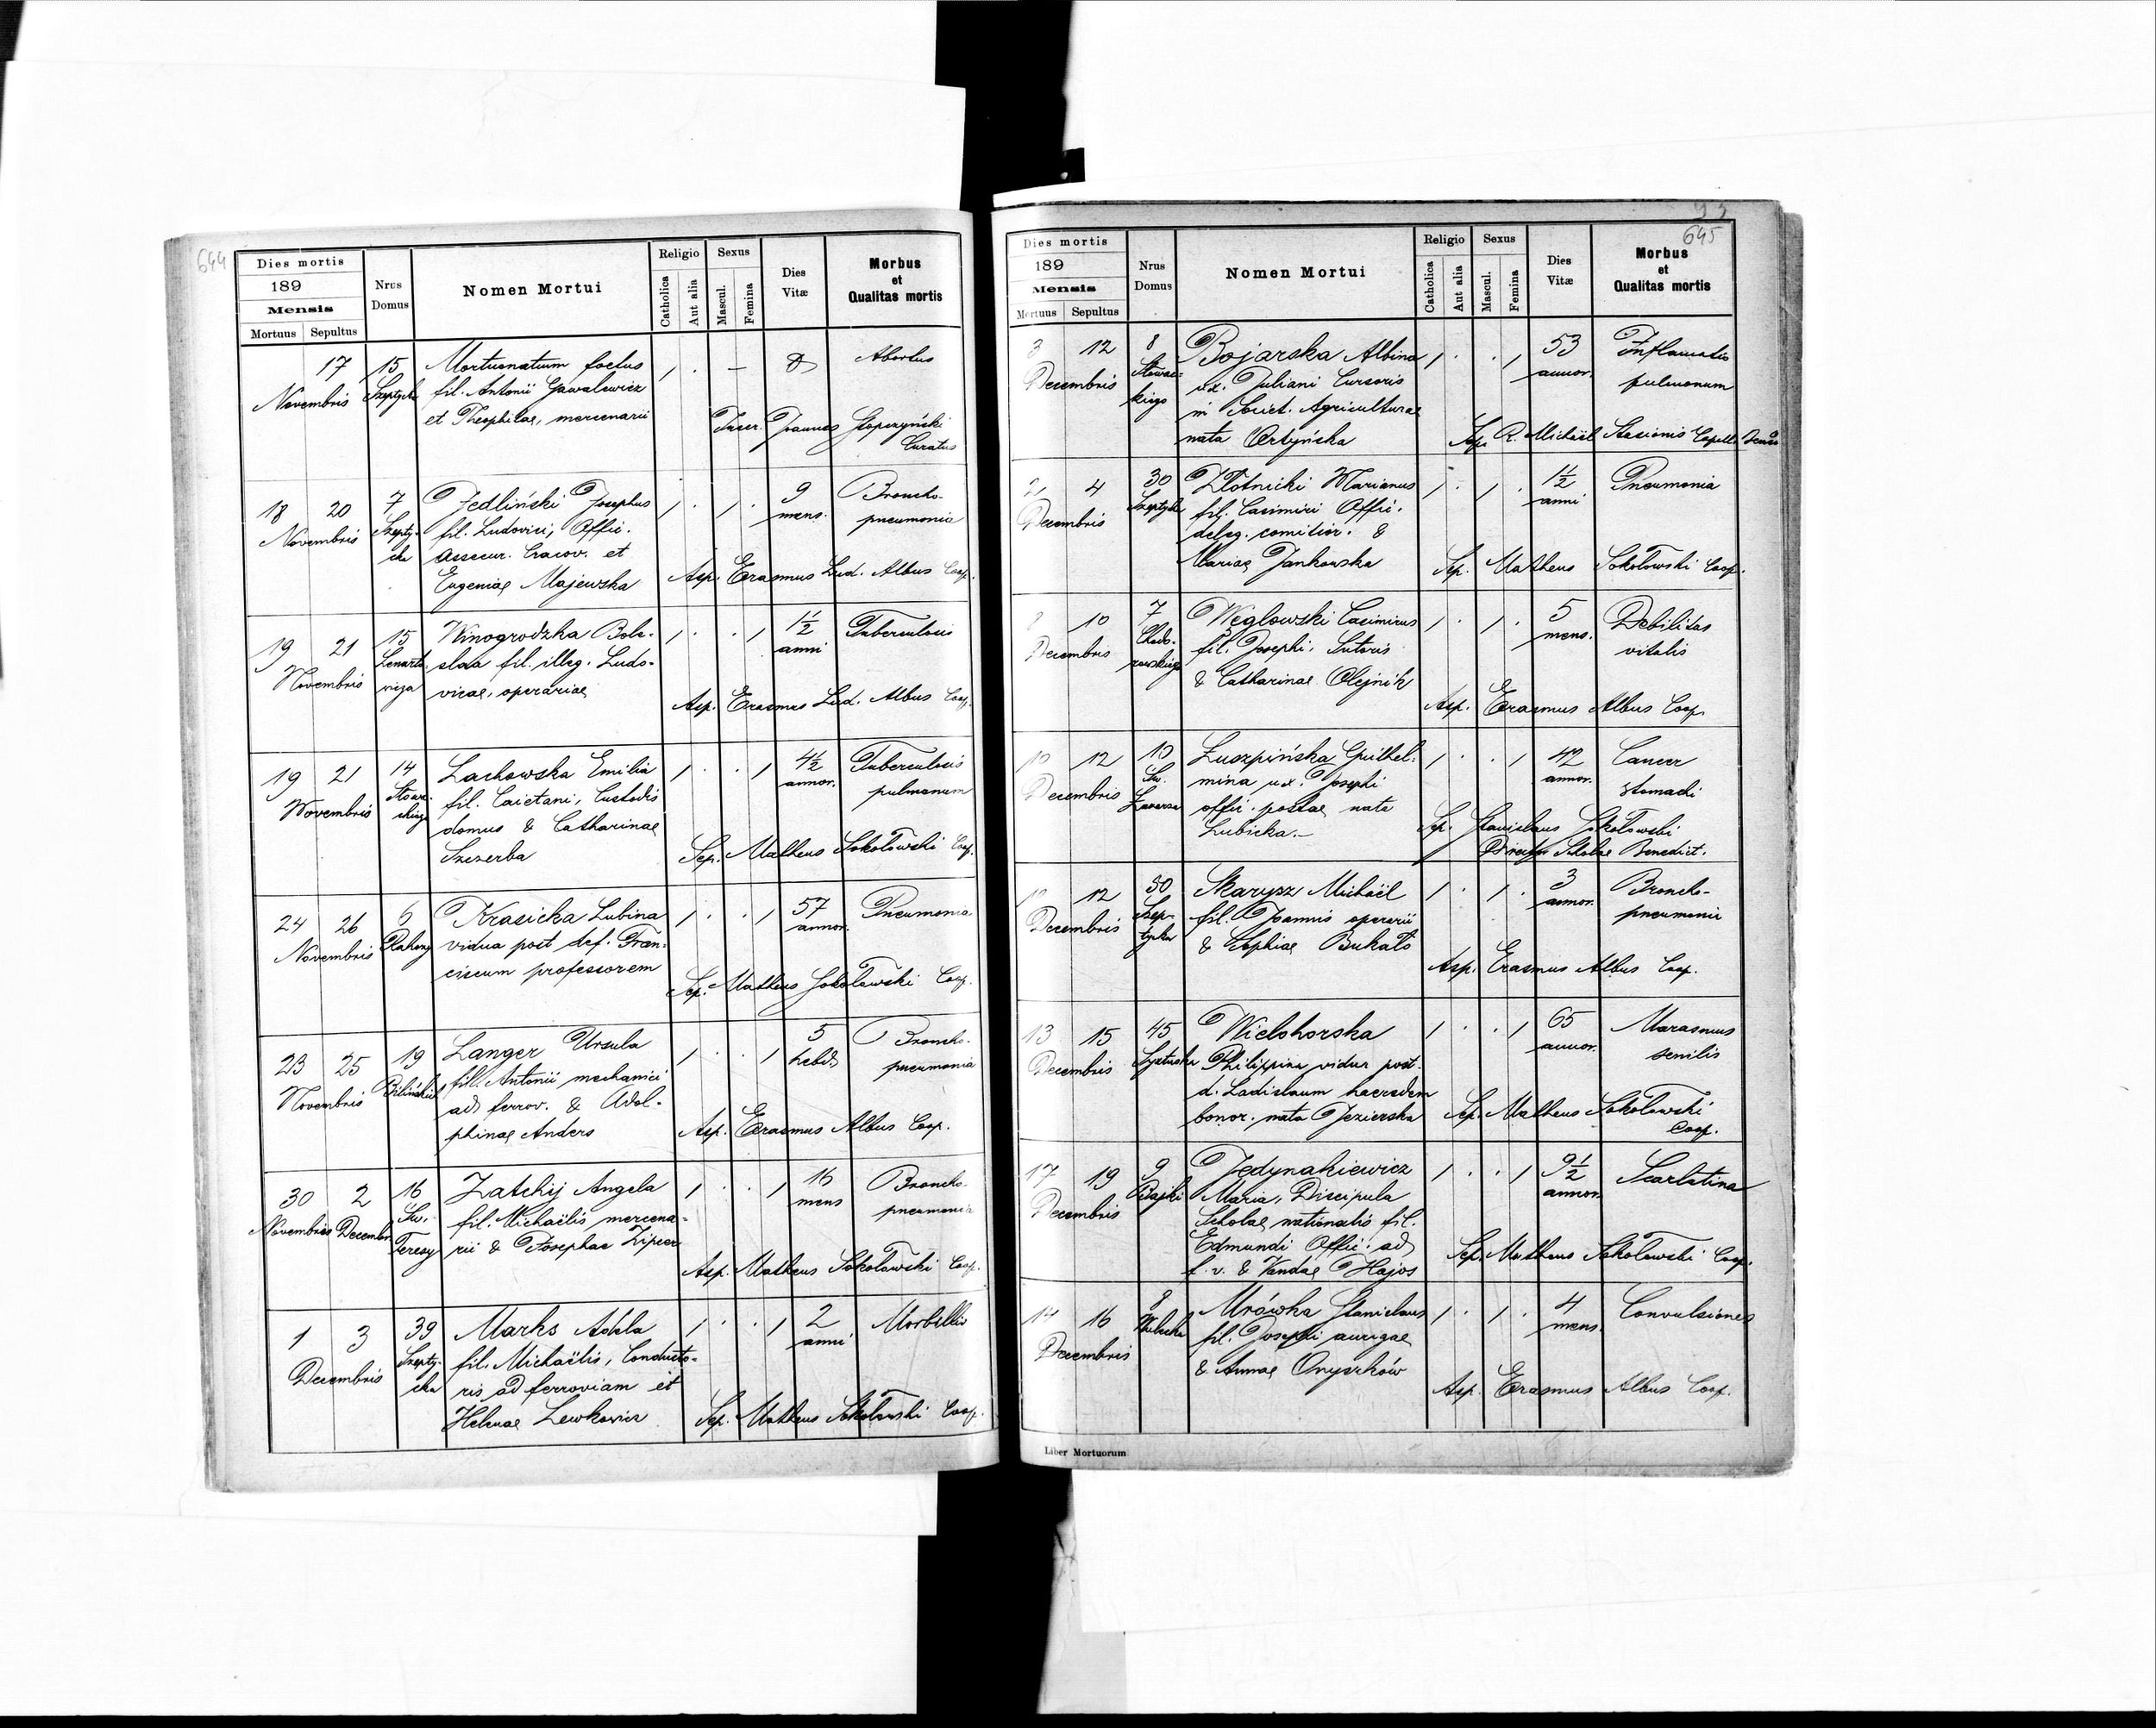 644
Dies mortis
189
Mensis
Mortuus Sepultus
Nrus
Domus
Nomen Mortui
Religio
Catholica
Aut alia
Sexus
Mascul.
Femina
Dies
Vitæ
Morbus
et
Qualitas mortis
17 15 Mortuonatum foetus 1 . — Abortus
Novembris Szeptycka fil. Antonii Gawalewicz
et Theophilae, mercenarii
Joannes
Curatus
18 20 7 Jedliński Josephus 1 . 1 . 9 Broncho-
Novembris Szepty- fil. Ludovici, Offic. mens. pneumonia
cka assecur. Cracov. et
Eugeniae Majewska Asp. Erasmus Lud. Albus Coop.
19 21 15 Winogrodzka Bole- 1 . . 1 1½ Tuberculosis
Novembris Lenarto- slaa fil. illeg. Ludo- anni
wicza vicae, operariae
Asp. Erasmus Lud. Albus Coop.
19 21 14 Lachowska Emilia 1 . . 1 4½ Tuberculosis
Novembris fil. Caietani, Custodis annor. pulmonum
domus & Catharinae
Szczerba Sep. Matheus Sokołowski Coop.
24 26 6 Krasicka Lubina 1 . . 1 57 Pneumonia
Novembris vidua post def. Fran- annor.
ciscum professorem
Sep. Matheus Sokołowski Coop.
23 25 19 Langer Ursula 1 . . 1 3 Broncho-
Novembris Bilińskich fil. Antonii mechanici hebd. pneumonia
ad ferrov. & Adol-
phinae Anders Asp. Erasmus Albus Coop.
30 2 16 Zatchij Angela 1 . . 1 16 Broncho-
Novembris Decembr. Św. fil. Michaëlis mercena- mens pneumonia
Teresy rii & Josephae Zipser
Asp. Matheus Sokołowski Coop.
1 3 39 Marks Adela 1 . . 1 2 Morbilli
Decembris Szepty- fil. Michaëlis, Conducto- anni
cka ris ad ferroviam et
Helenae Lewkowicz Sep. Matheus Sokołowski Coop.
93
645
Dies mortis
189
Mensis
Mortuus Sepultus
Nrus
Domus
Nomen Mortui
Religio
Catholica
Aut alia
Sexus
Mascul.
Femina
Dies
Vitæ
Morbus
et
Qualitas mortis
3 12 8 Bojarska Albina 1 . . 1 53 Inflamatio
Decembris Słowac- ux. Juliani Cursoris annor. pulmonum
kiego in Societ. Agriculturae
nata Ortyńska Sep. R. Michaël
2 4 30 Złotnicki Marianus 1 . 1 . 1½ Pneumonia
Decembris Szeptycka fil. Casimiri Offic. anni
deleg. comitior. &
Mariae Jankowska Sep. Matheus Sokołowski Coop.
10 7 Węglowski Casimirus 1 . 1 . 5 Debilitas
Decembris fil. Josephi, Sutoris mens. vitalis
& Catharinae Olejnik
Asp. Erasmus Albus Coop.
10 12 10 Łuszpińska Guilhel- 1 . . 1 42 Cancer
Decembris Św. mina ux. Josephi annor. stomachi
Łazarza offic. postae nata
Łubicka.— Sep. Stanislaus Sokołowski
Director Scholae Benedict.
12 30 Skarysz Michaël 1 . 1 . 3 Broncho-
Decembris Szep- fil. Joannis operarii annor. pneumonia
tycka & Sophiae Bukało
Asp. Erasmus Albus Coop.
13 15 45 Wielohorska 1 . . 1 65 Marasmus
Decembris Philippina vidua post annor. senilis
d. Ladislaum haeredem
bonor. nata Jezierska Sep. Matheus Sokołowski
Coop.
17 19 9 Jedynakiewicz 1 . . 1 9½ Scarlatina
Decembris Bajki Maria, Discipula annor.
Scholae nationalis fil.
Edmundi Offic. ad
f. v. & Vandae Hajos Sep. Matheus Sokołowski Coop.
14 16 8 Mrówka Stanislaus 1 . 1 . 4 Convulsiones
Decembris Wulecka fil. Josephi aurigae mens.
& Annae Onyszków
Asp. Erasmus Albus Coop.
Liber Mortuorum